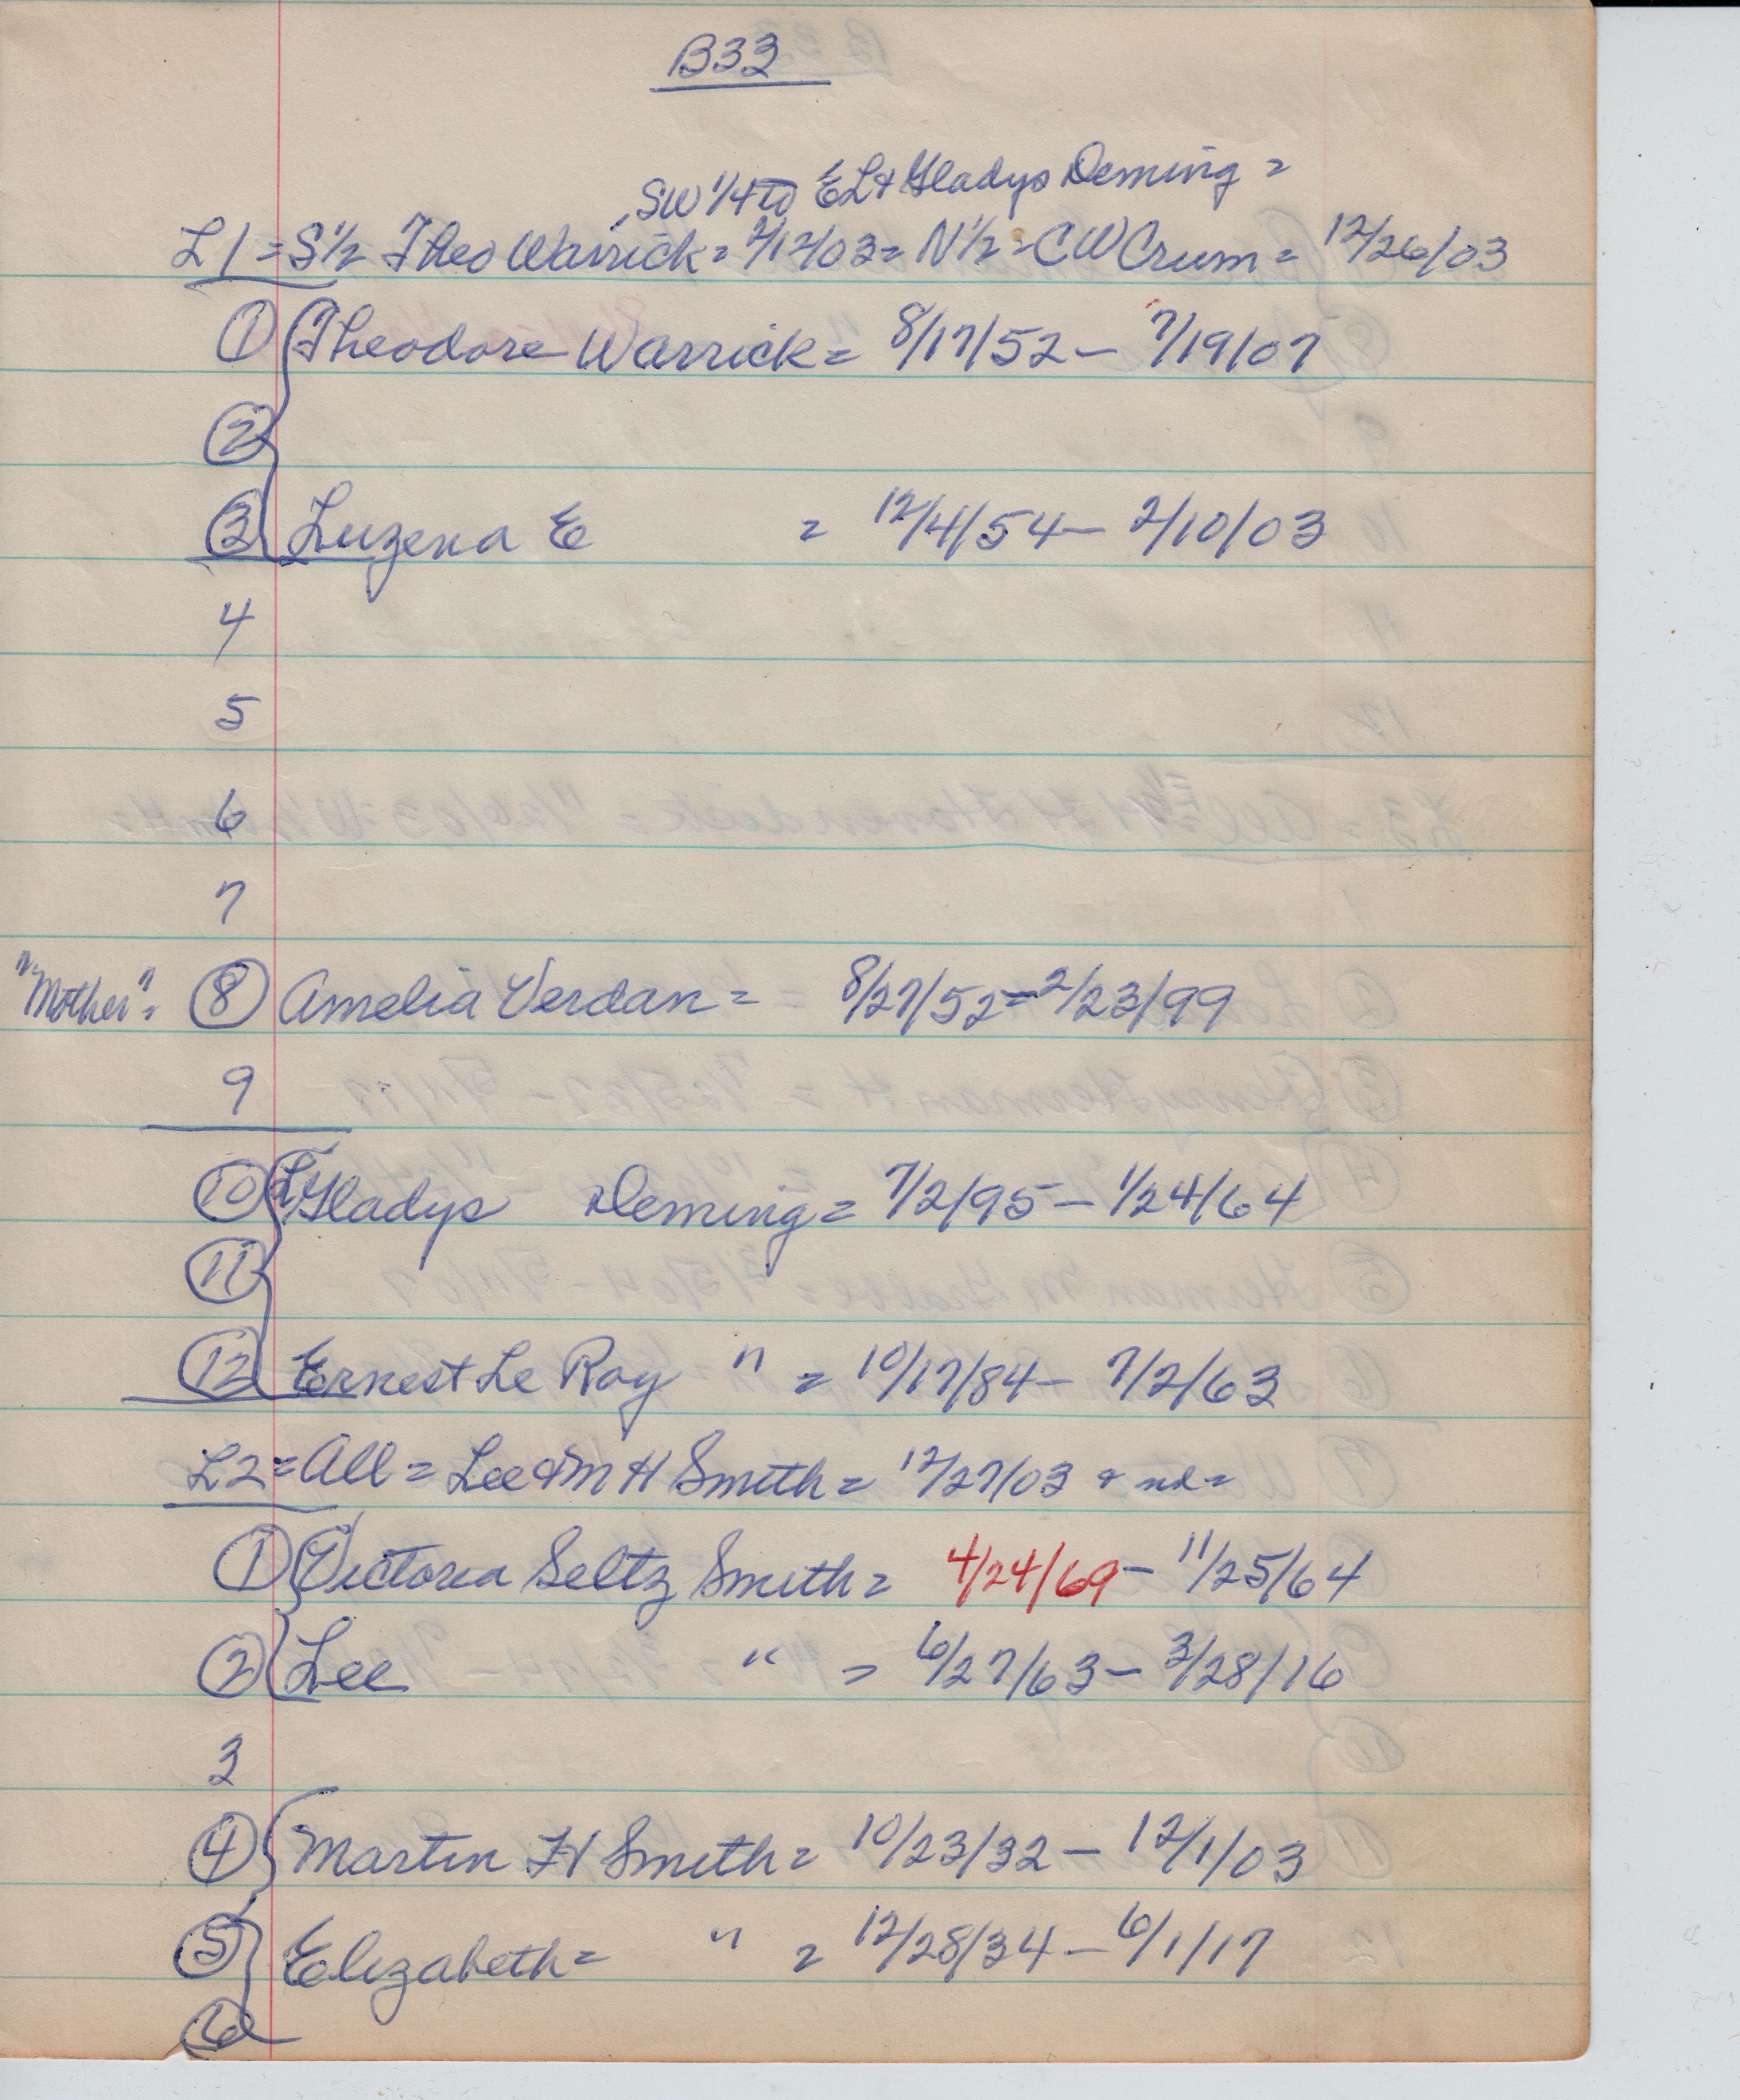 B33
SW 1/4 to EL & Gladys Deming =
L1 = S 1/2 Theo Warrick = 2/12/03 = N 1/2 = CW Crum = 12/26/03
1 Theodore Warrick = 8/17/52 - 7/19/07
2
3 Luzena E = 12/4/54 - 2/10/03
4
5
6
7
"Mother" = 8 Amelia Verdan = 8/27/52 = 2/23/99
9
10 Gladys Deming = 7/2/95 - 1/24/64
11
12 Ernest Le Roy " = 10/17/84 - 7/2/63
L2 = All = Lee & M H Smith = 12/27/03 & nd =
1 Victoria Seltz Smith = 4/24/69 - 11/25/64
2 Lee " = 6/27/63 - 3/28/16
3
4 Martin H Smith = 10/23/32 - 12/1/03
5 Elizabeth = " = 12/28/34 - 6/1/17
6